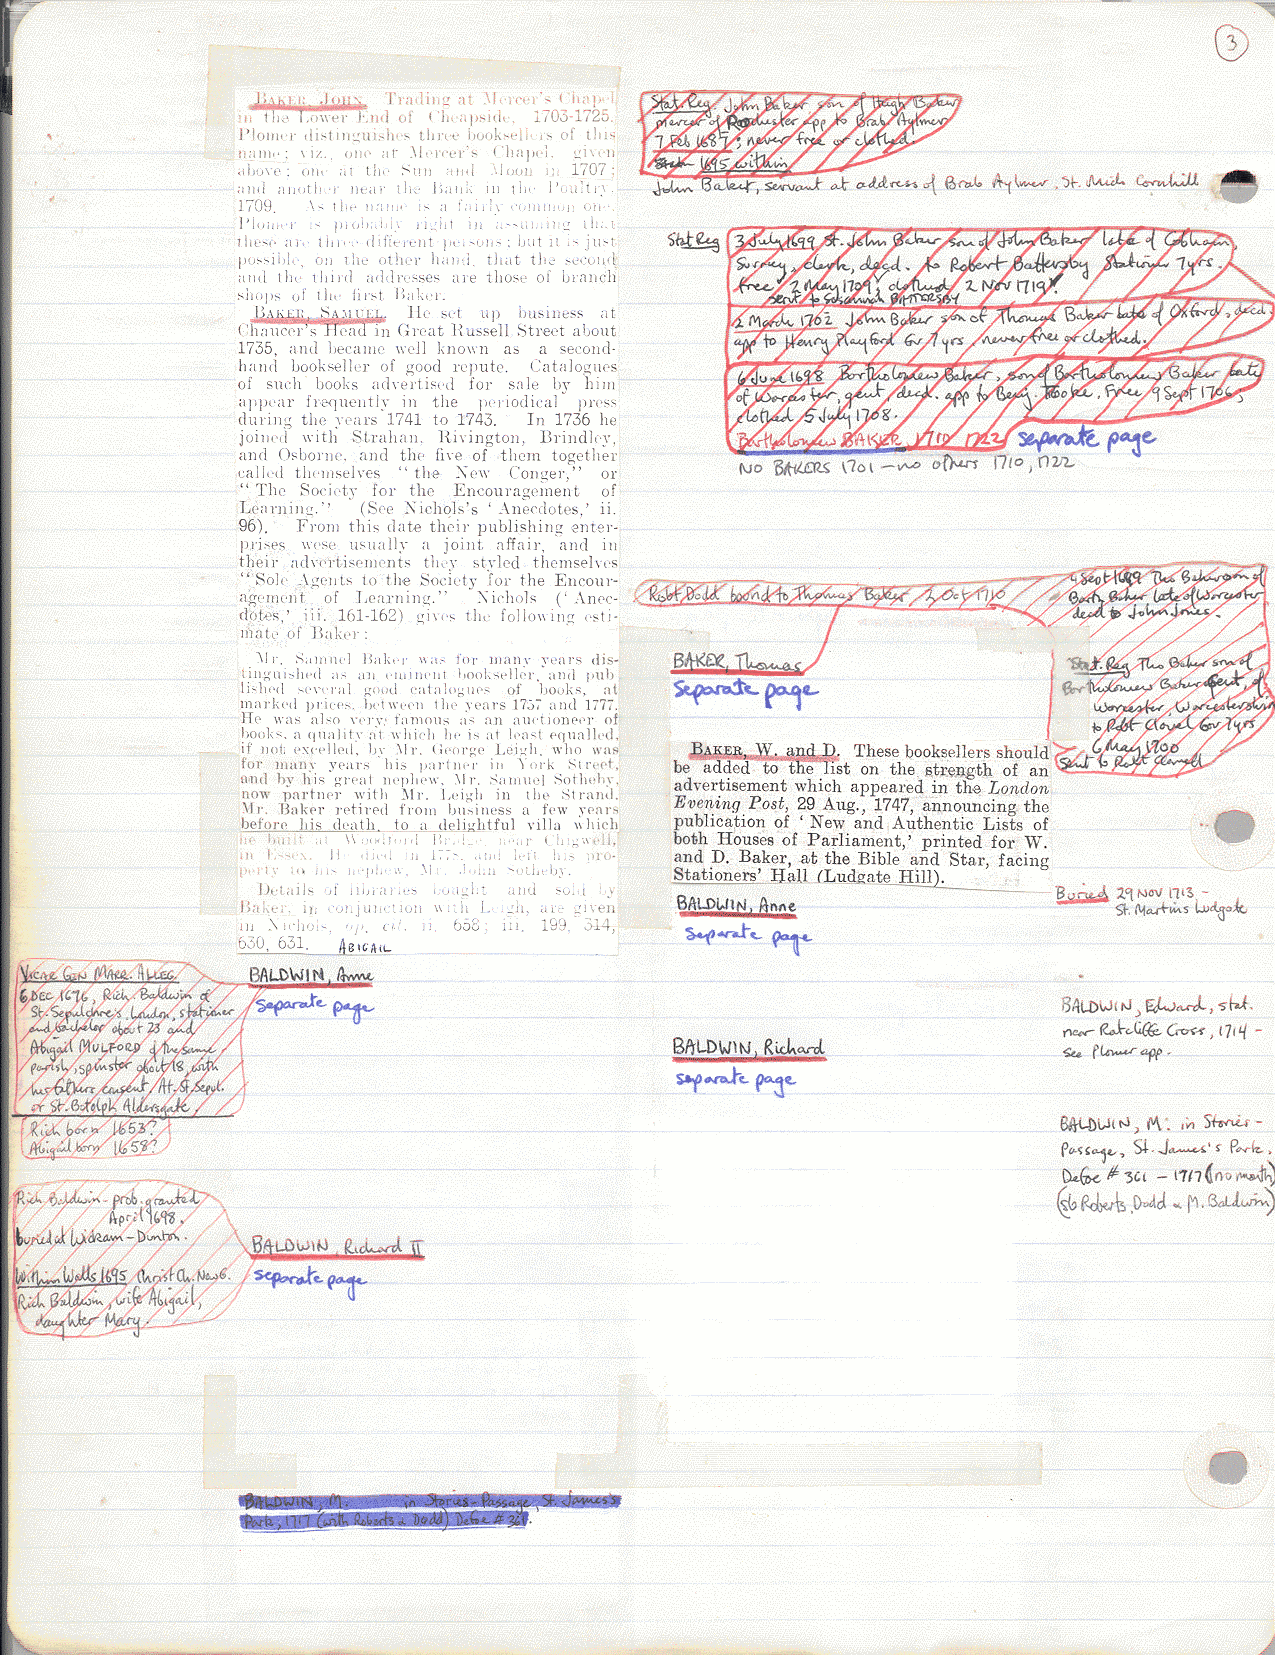 3
BAKER, JOHN. Trading at Mercer's Chapel
in the Lower End of Cheapside, 1703-1725.
Plomer distinguishes three booksellers of this
name; viz., one at Mercer's Chapel, given
above; one at the Sun and Moon in 1707;
and another near the Bank in the Poultry,
1709. As the name is a fairly common one,
Plomer is probably right in assuming that
these are three different persons; but it is just
possible, on the other hand, that the second
and the third addresses are those of branch
shops of the first Baker.
BAKER, SAMUEL. He set up business at
Chaucer's Head in Great Russell Street about
1735, and became well known as a second-
hand bookseller of good repute. Catalogues
of such books advertised for sale by him
appear frequently in the periodical press
during the years 1741 to 1743. In 1736 he
joined with Strahan, Rivington, Brindley,
and Osborne, and the five of them together
called themselves "the New Conger," or
"The Society for the Encouragement of
Learning." (See Nichols's 'Anecdotes,' ii.
96). From this date their publishing enter-
prises wese usually a joint affair, and in
their advertisements they styled themselves
"Sole Agents to the Society for the Encour-
agement of Learning." Nichols ('Anec-
dotes,' iii. 161-162) gives the following esti-
mate of Baker:
Mr. Samuel Baker was for many years dis-
tinguished as an eminent bookseller, and pub
lished several good catalogues of books, at
marked prices, between the years 1757 and 1777.
He was also very famous as an auctioneer of
books, a quality at which he is at least equalled,
if not excelled, by Mr. George Leigh, who was
for many years his partner in York Street,
and by his great nephew, Mr. Samuel Sotheby,
now partner with Mr. Leigh in the Strand.
Mr. Baker retired from business a few years
before his death, to a delightful villa which
he built at Woodford Bridge, near Chigwell,
in Essex. He died in 1778, and left his pro-
perty to his nephew, Mr. John Sotheby.
Details of libraries bought and sold by
Baker, in conjunction with Leigh, are given
in Nichols, op. cit. ii. 658; iii. 199, 514,
630, 631.
ABIGAIL
BALDWIN, Anne
separate page
VICAR GEN MARR. ALLEG.
6 DEC 1676, Rich. Baldwin of
St. Sepulchre's, London, stationer
and bachelor about 23 and
Abigail MULFORD of the same
parish, spinster about 18, with
her father's consent. At St. Sepul.
or St. Botolph Aldersgate.
Rich born 1653?
Abigail born 1658?
Rich Baldwin - prob. granted
April 1698.
buried at Wickam - Dunton.
Within Walls 1695 Christ Ch. Newg.
Rich Baldwin, wife Abigail,
daughter Mary.
BALDWIN, Richard II
separate page
BALDWIN, M. in Stories-Passage, St. James's
Park, 1717 (with Roberts & Dodd) Defoe # 361.
Stat Reg. John Baker son of Hugh Baker
mercer of Rochester app to Brab Aylmer
7 Feb 1687; never free or clothed.
1695 within
John Baker, servant at address of Brab Aylmer, St. Mich Cornhill
Stat Reg 3 July 1699 St. John Baker son of John Baker late of Cobham,
Surrey, clerk, decd. to Robert Battersby Stationer 7yrs.
free 2 May 1709; clothed 2 Nov 1719.
sent to Susannah BATTERSBY
2 March 1702 John Baker son of Thomas Baker late of Oxford, decd.
app to Henry Playford for 7 yrs, never free or clothed.
6 June 1698 Bartholomew Baker, son of Bartholomew Baker late
of Worcester, gent, decd. app to Benj. Tooke. Free 9 Sept 1706,
clothed 5 July 1708.
Bartholomew BAKER, 1710 1722 separate page
NO BAKERS 1701 - no others 1710, 1722
Robt Dodd bound to Thomas Baker 2 Oct 1710
4 Sept 1689 Tho Baker son of
Barth Baker late of Worcester
decd to John Jones.
Stat. Reg Tho Baker son of
Bartholomew Baker Gent, of
Worcester, Worcestershire
to Robt Clavel for 7 yrs
6 May 1700
sent to Robt Clavell
BAKER, Thomas
separate page
BAKER, W. and D. These booksellers should
be added to the list on the strength of an
advertisement which appeared in the London
Evening Post, 29 Aug., 1747, announcing the
publication of 'New and Authentic Lists of
both Houses of Parliament,' printed for W.
and D. Baker, at the Bible and Star, facing
Stationers' Hall (Ludgate Hill).
BALDWIN, Anne
separate page
Buried 29 Nov 1713 -
St. Martins Ludgate
BALDWIN, Richard
separate page
BALDWIN, Edward, stat.
near Ratcliffe Cross, 1714 -
see Plomer app.
BALDWIN, M: in Stories-
Passage, St. James's Park,
Defoe # 361 - 1717 (no month)
(sb Roberts, Dodd & M. Baldwin)